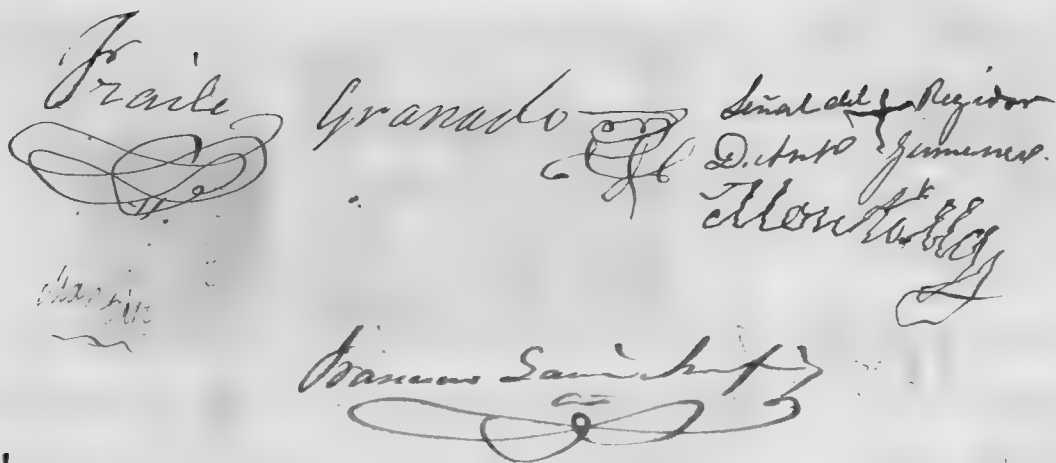 Fraile
Granado
Señal del Regidor
D. Antº Jimenez.
Montalbo
Martin
Francisco